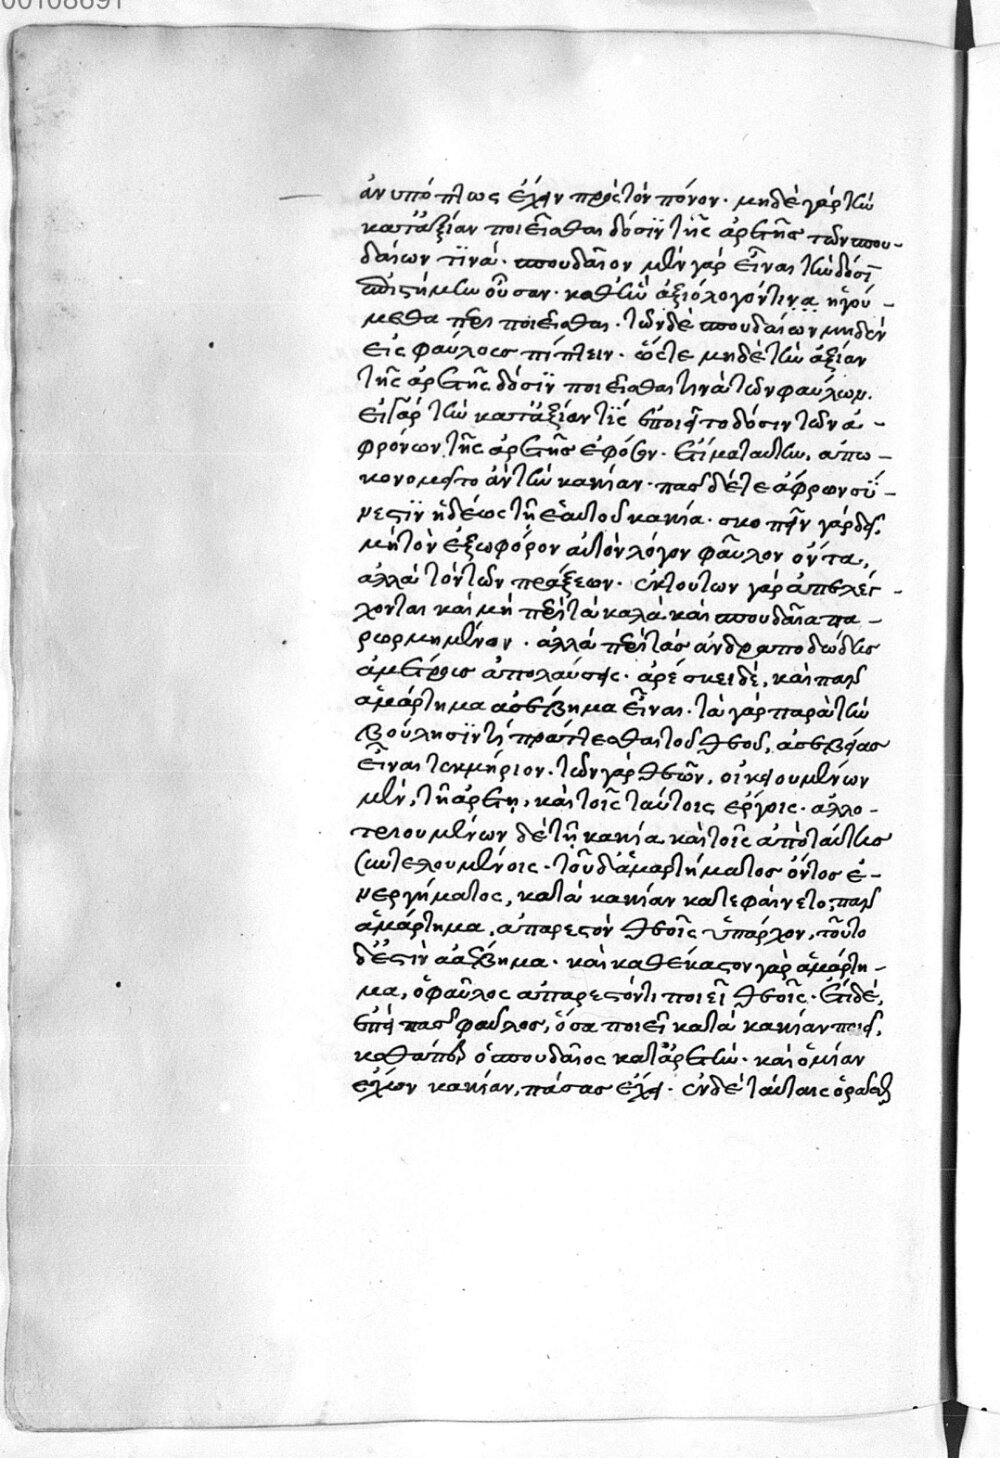 00108691
ἀνυπόπτως ἔχειν πρὸς τὸν πόνον· μηδὲ γὰρ τὴν
κατ' ἀξίαν ποιεῖσθαι δόσϊν τῆς ἀρετῆς τῶν σπου-
δαίων τϊνά· σπουδαῖον μὲν γὰρ εἶναι τὴν δόσϊν
ἐπιστήμην οὖσαν· καθ' ἣν ἀξιόλογόν τινα ἡγού-
μεθα περιποιεῖσθαι· τῶν δὲ σπουδαίων μηδὲν
εἰς φαύλους πίπτειν· ὥστε μηδὲ τὴν ἀξίαν
τῆς ἀρετῆς δόσϊν ποιεῖσθαι τινὰ τῶν φαύλων.
εἰ γὰρ τὴν κατ' ἀξίαν τϊς ἐποιεῖτο δόσιν τῶν ἀ-
φρόνων τῆς ἀρετῆς ἐφόσον· ἐτίμα ταύτην, ἀπω-
κονομεῖτο ἂν τὴν κακίαν· πᾶς δέ τε ἄφρων σύ-
νεστϊν ἡδέως τῆ ἑαυτοῦ κακία· σκοπεῖν γὰρ δεῖ,
μὴ τὸν ἐξωφόρον αὐτῶν λόγον φαῦλον ὄντα,
ἀλλὰ τὸν τῶν πράξεων· ἐκ τούτων γὰρ ἀπελέγ-
χονται καὶ μὴ περὶ τὰ καλὰ καὶ σπουδαῖα πα-
ρωρμημένοι· ἀλλὰ περὶ τὰς ἀνδραποδώδεις
ἀμέτρους ἀπολαύσεις· ἀρέσκει δέ, καὶ πᾶν
ἁμάρτημα ἀσέβημα εἶναι· τὸ γὰρ παρὰ τὴν
βούλησϊν τι πράττεσθαι τοῦ θεοῦ, ἀσεβείας
εἶναι τεκμήριον· τῶν γὰρ θεῶν, οἰκειουμένων
μὲν, τῆ ἀρετῆ, καὶ τοῖς ταύτης ἔργοις· ἀλλο-
τριουμένων δὲ τῆ κακία καὶ τοῖς ἀπὸ ταύτης
συντελουμένοις· τοῦ δ' ἁμαρτήματος ὄντος ἐ-
νεργήματος, κατὰ κακίαν κατεφαίνετο, πᾶν
ἁμάρτημα, ἀπαρεστὸν θεοῖς ὑπάρχον, τοῦτο
δ' ἐστὶν ἀσέβημα· καὶ καθ' ἕκαστον γὰρ ἁμάρτη-
μα, ὁ φαῦλος ἀπαρεστόν τι ποιεῖ θεοῖς· ἔτι δέ,
ἐπεὶ πᾶς φαῦλος, ὅσα ποιεῖ κατὰ κακίαν ποιεῖ,
καθάπερ ὁ σπουδαῖος κατ' ἀρετήν· καὶ ὁ μίαν
ἔχων κακίαν, πάσας ἔχει· ἐν δὲ ταύταις ὁρᾶσθαι